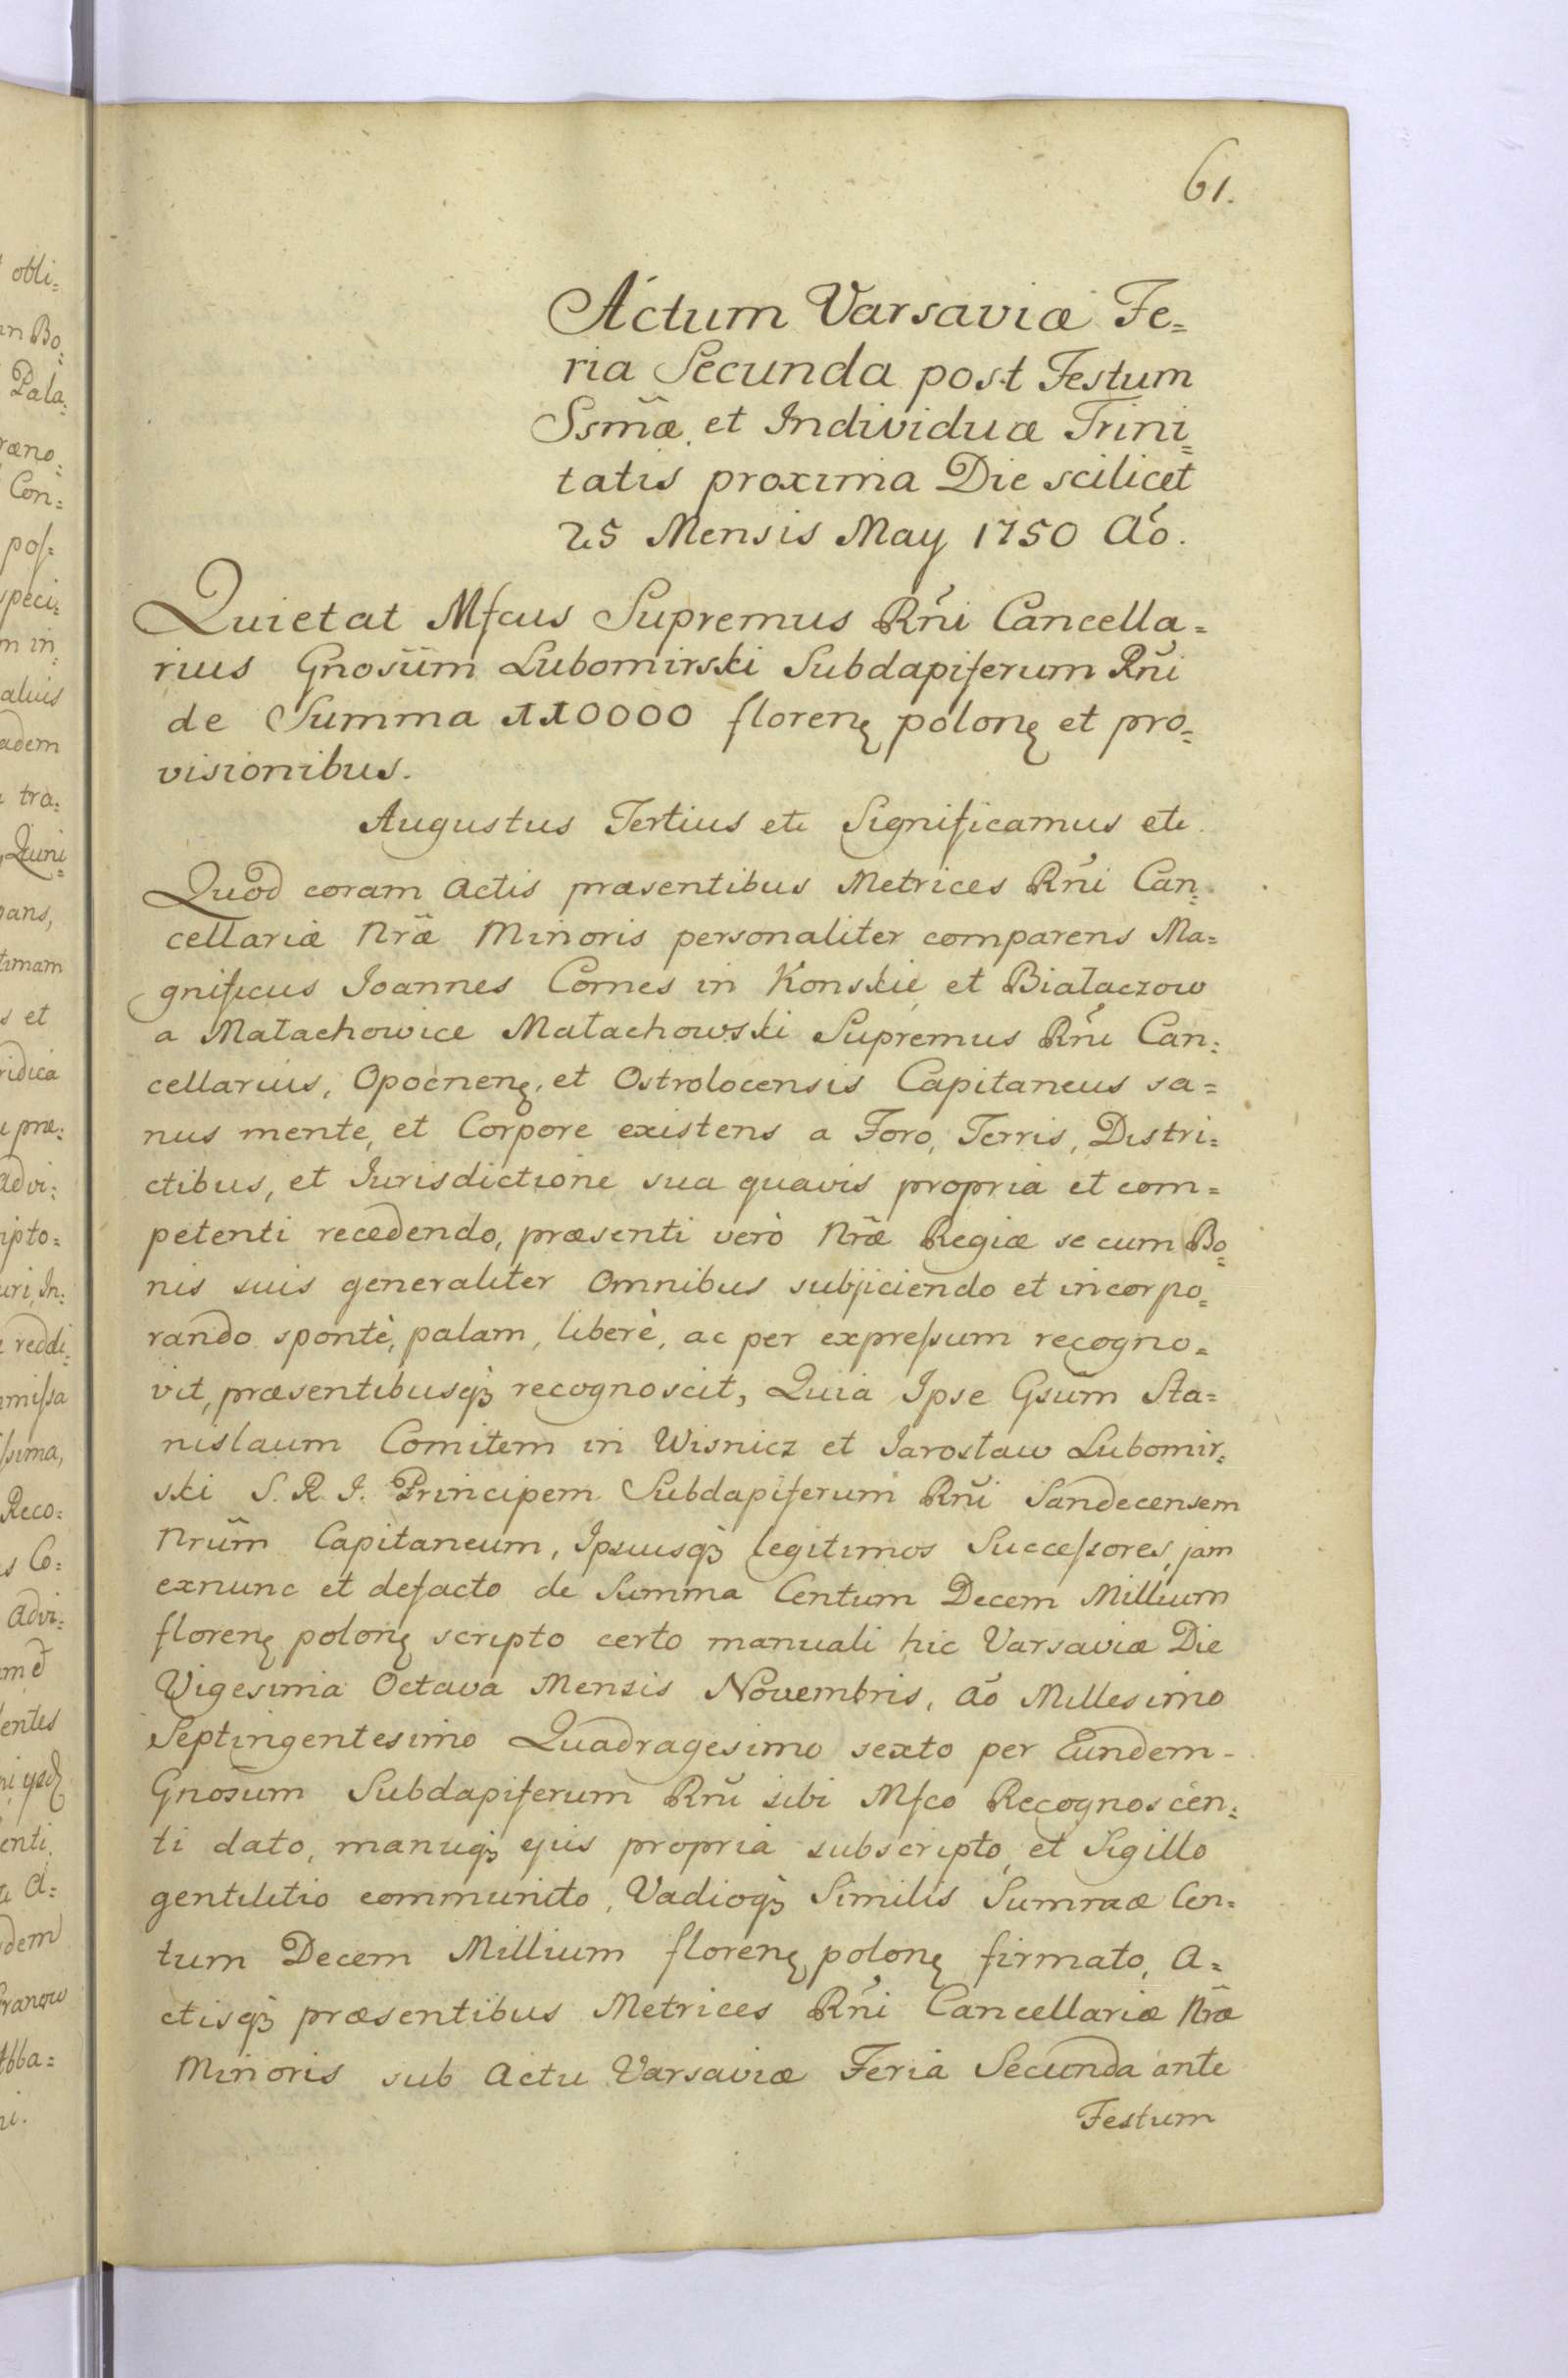 61.
Actum Varsaviæ Fe=
ria Secunda post Festum
Ssm̃æ et Individuæ Trini=
tatis proxima Die scilicet
25 Mensis May 1750 Aó.
Quietat Mfcus Supremus Rñi Cancella=
rius Gnosum Lubomirski Subdapiferum Rñi
de Summa 110000 florenę polonę et pro=
visionibus.
Augustus Tertius etc Significamus etc
Quod coram Actis præsentibus Metrices Rñi Can=
cellariæ Nræ̃ Minoris personaliter comparens Ma=
gnificus Joannes Comes in Konskie et Białaczow
a Małachowice Małachowski Supremus Rñi Can=
cellarius, Opocnenę, et Ostrolocensis Capitaneus sa=
nus mente, et Corpore existens a Foro, Terris, Distri=
ctibus, et Iurisdictione sua quavis propria et com=
petenti recedendo, præsenti verò Nræ̃ Regiæ se cum Bo=
nis suis generaliter Omnibus subjiciendo et incorpo=
rando spontè, palam, liberè, ac per expreſsum recogno=
vit, præsentibusqꝫ recognoscit, Quia Ipse Gsũm Sta=
nislaum Comitem in Wisnicz et Jarosław Lubomir=
ski S. R. J. Principem Subdapiferum Rñi Sandecensem
Nrũm Capitaneum, Ipsiusqꝫ legitimos Succeſsores, jam
exnunc et defacto de Summa Centum Decem Millium
florenę polonę scripto certo manuali hic Varsaviæ Die
Vigesima Octava Mensis Novembris, Aó Millesimo
Septingentesimo Quadragesimo sexto per Eundem-
Gnosum Subdapiferum Rñi sibi Mfco Recognoscen=
ti dato, manuqꝫ ejus propria subscripto, et Sigillo
gentilitio communito, Vadioqꝫ Similis Summæ Cen=
tum Decem Millium florenę polonę firmato, A=
ctisqꝫ præsentibus Metrices Rñi Cancellariæ Nræ̃
Minoris sub Actu Varsaviæ Feria Secunda ante
Festum